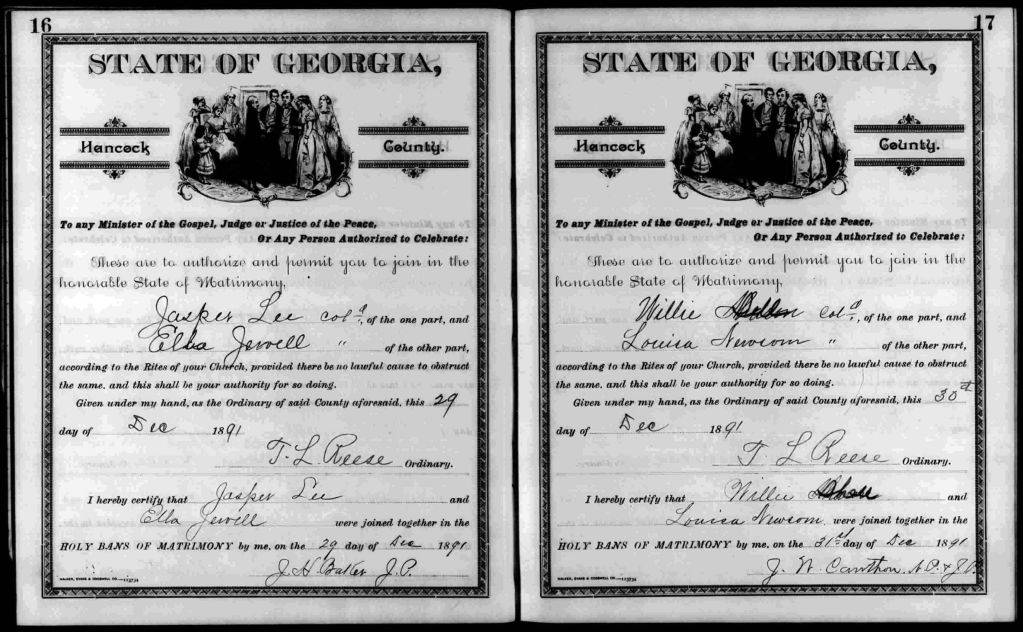 16
STATE OF GEORGIA,
Hancock County.
To any Minister of the Gospel, Judge or Justice of the Peace,
Or Any Person Authorized to Celebrate:
These are to authorize and permit you to join in the
honorable State of Matrimony,
Jasper Lee Cold, of the one part, and
Ella Jewell " of the other part,
according to the Rites of your Church, provided there be no lawful cause to obstruct
the same, and this shall be your authority for so doing.
Given under my hand, as the Ordinary of said County aforesaid, this 29
day of Dec 1891
T. L. Reese Ordinary.
I hereby certify that Jasper Lee and
Ella Jewell were joined together in the
HOLY BANS OF MATRIMONY by me, on the 29 day of Dec 1891
J. H. J. P.
WALKER, EVANS & COGSWELL CO.
17
STATE OF GEORGIA,
Hancock County.
To any Minister of the Gospel, Judge or Justice of the Peace,
Or Any Person Authorized to Celebrate:
These are to authorize and permit you to join in the
honorable State of Matrimony,
Willie Cold, of the one part, and
Louisa Newsom " of the other part,
according to the Rites of your Church, provided there be no lawful cause to obstruct
the same, and this shall be your authority for so doing.
Given under my hand, as the Ordinary of said County aforesaid, this 30
day of Dec 1891
T. L. Reese Ordinary.
I hereby certify that Willie and
Louisa Newsom were joined together in the
HOLY BANS OF MATRIMONY by me, on the 31st day of Dec 1891
J. W. Cawthon N. P. & J. P.
WALKER, EVANS & COGSWELL CO.